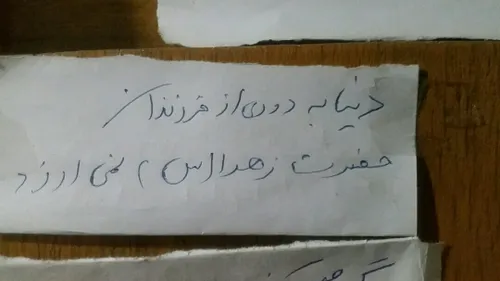 دنیا به دوری از فرزندان
حضرت زهرا(س) نمی ارزد